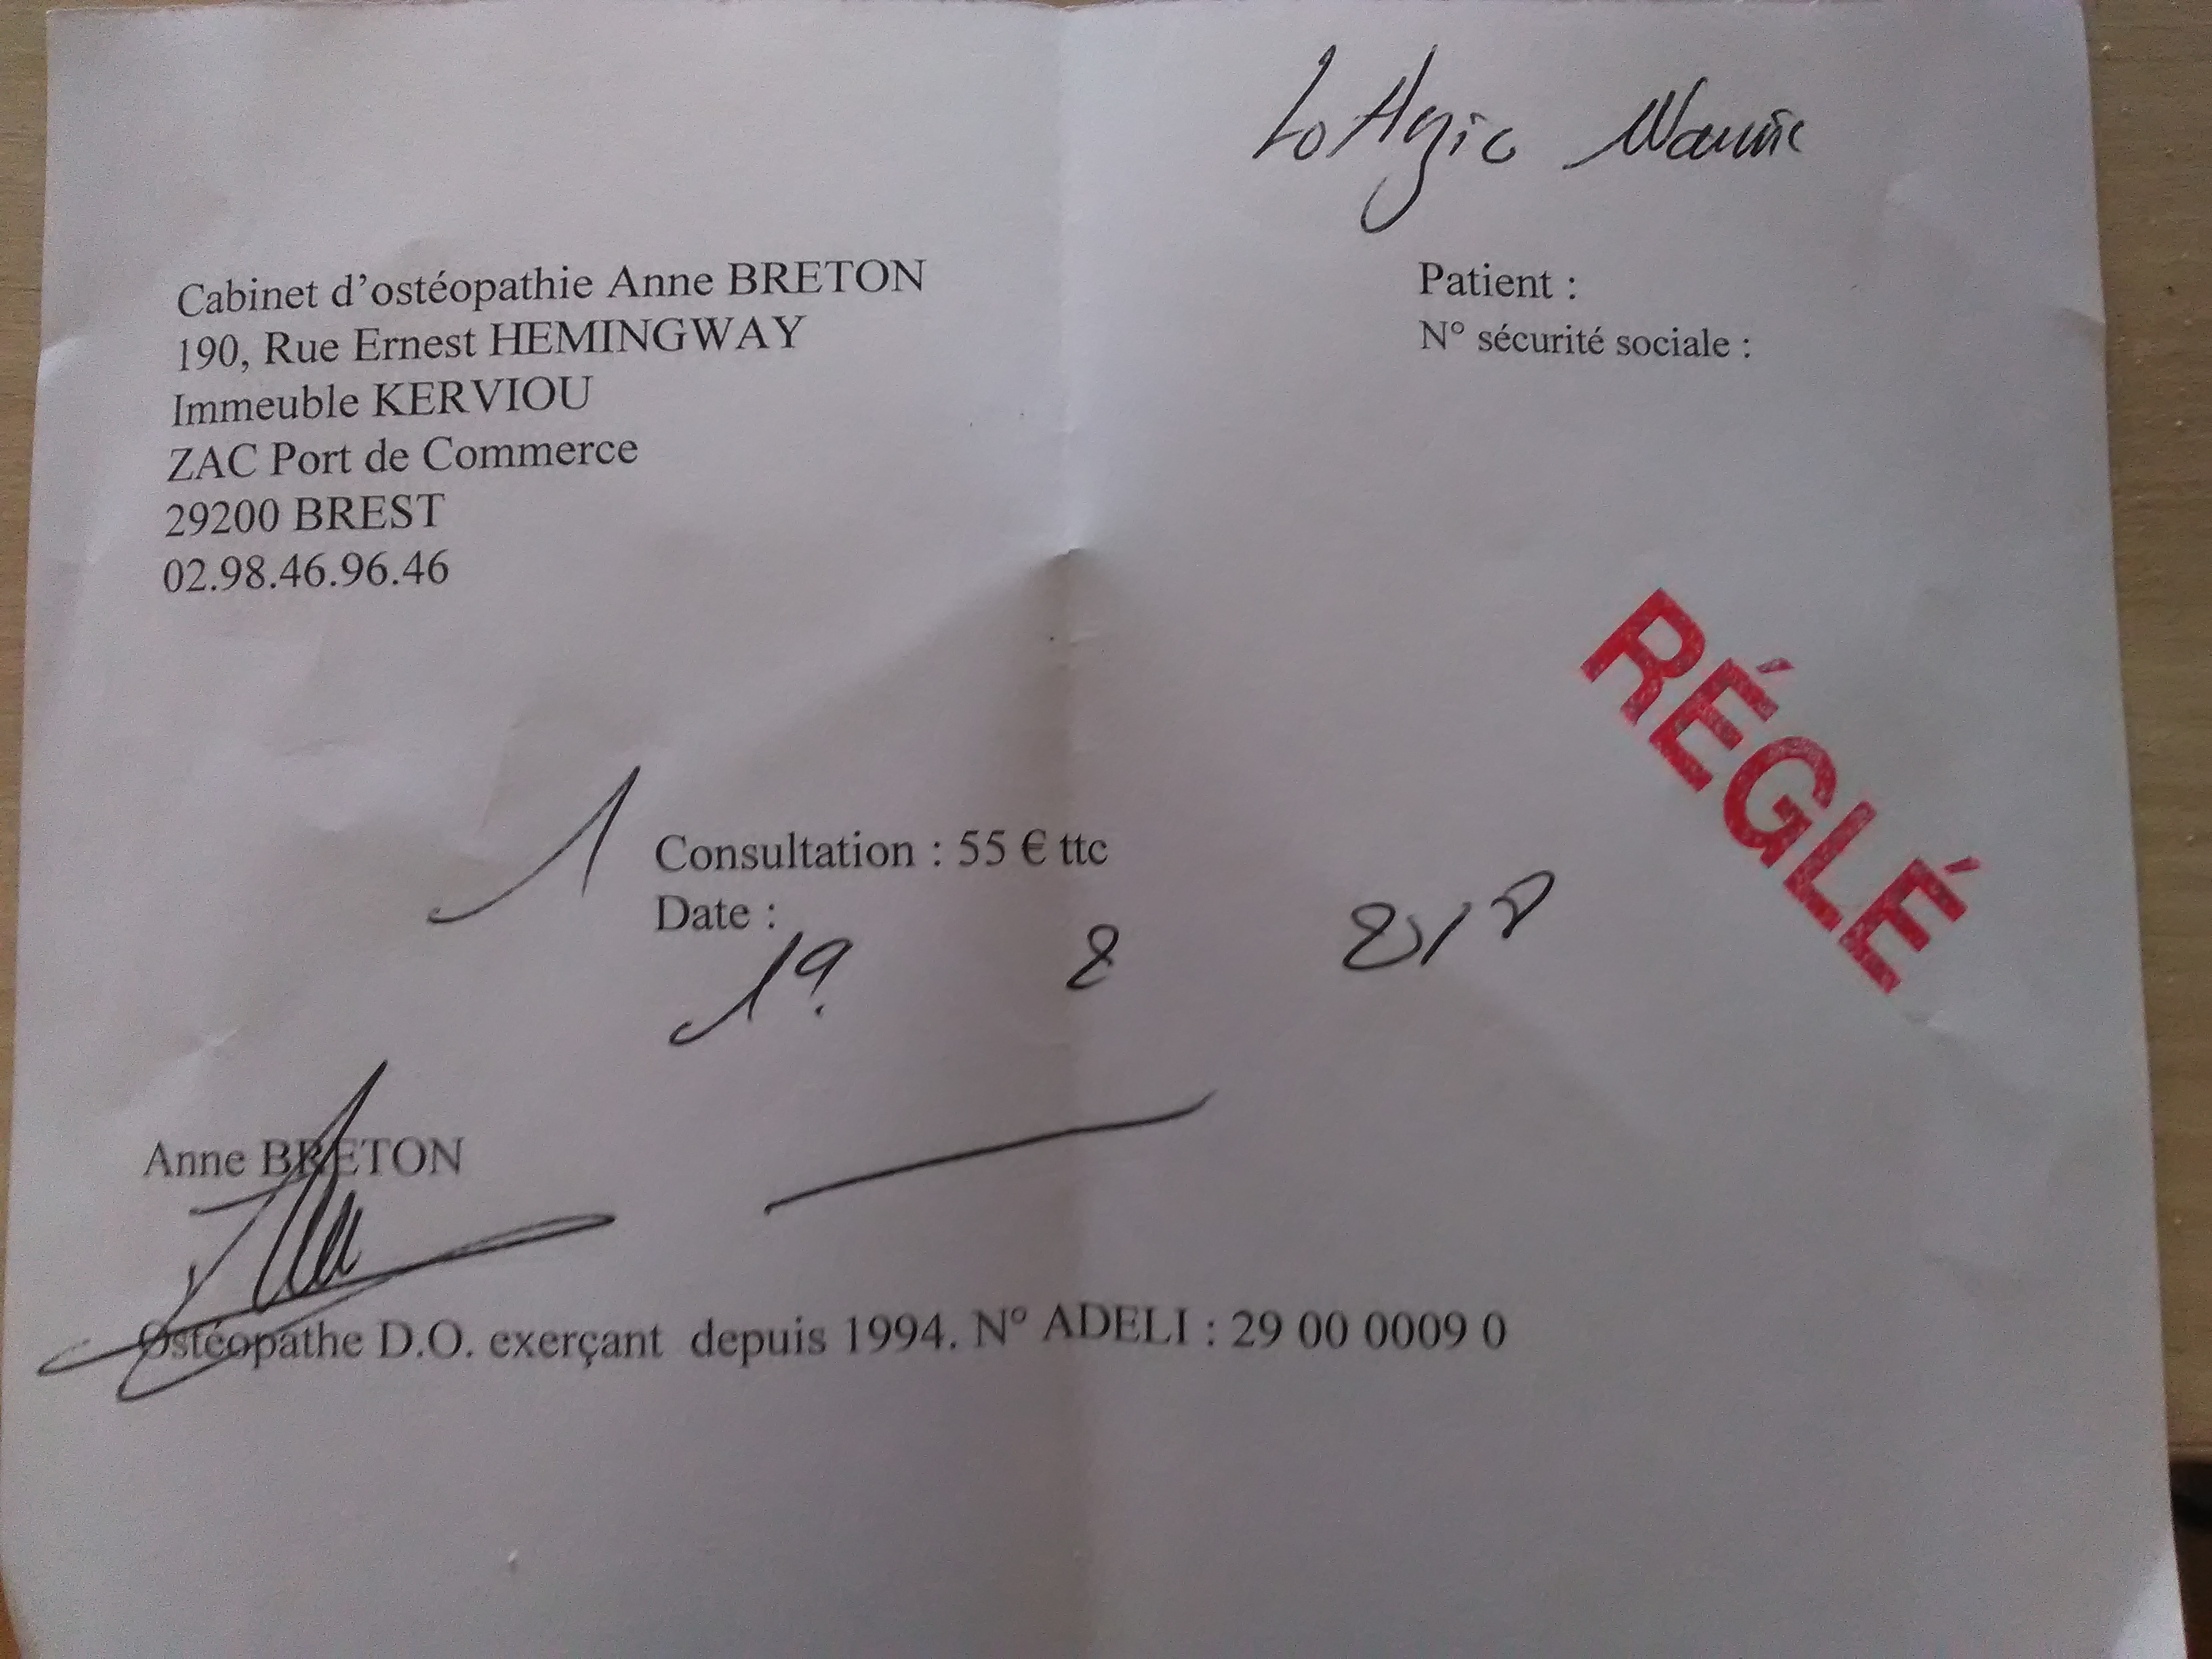 Cabinet d'ostéopathie Anne BRETON
190, Rue Ernest HEMINGWAY
Immeuble KERVIOU
ZAC Port de Commerce
29200 BREST
02.98.46.96.46
Patient :
N° sécurité sociale :
RÉGLÉ
1 Consultation : 55 € ttc
Date :
19 8
Anne BRETON
Ostéopathe D.O. exerçant depuis 1994. N° ADELI : 29 00 0009 0